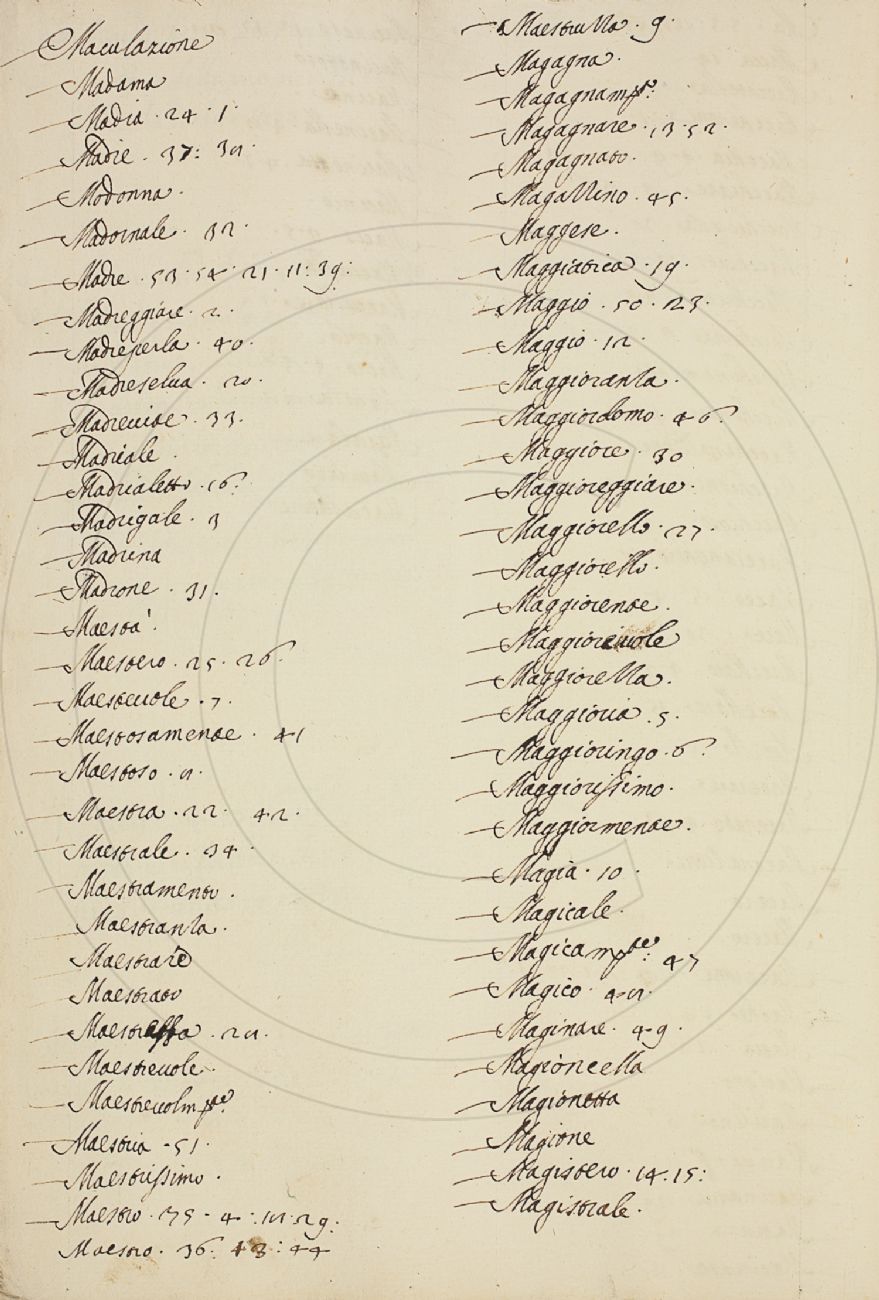 Maculazione
Madama
Madia · 24 · 1 ·
Madie · 37: 38 ·
Modonna ·
Madornale · 32 ·
Madre · 53 · 54 · 21 · 11: 39:
Madreggiare · 2 ·
Madreperla · 40 ·
Madreselva · 20 ·
Madrevite · 33 ·
Madriale ·
Madrialetto · 16:
Madrigale · 3
Madrina
Madrone · 31 ·
Maestà ·
Maestero · 25 · 26:
Maestevole · 7 ·
Maestosamente · 41
Maestoso · 8 ·
Maestra · 22 · 42 ·
Maestrale · 34 ·
Maestramento ·
Maestranza ·
Maestrare
Maestrato
Maestressa · 28 ·
Maestrevole ·
Maestrevolmte:
Maestria · 51 ·
Maestrissimo ·
Maestro · 35 · 4 · 18 · 29:
Maestro · 36: 43: 44
Maestruzza · 9 ·
Magagna ·
Magagnamte:
Magagnare · 13 · 52 ·
Magagnato ·
Magazzino · 45 ·
Maggese ·
Maggiatica · 19 ·
Maggio · 50 · 23 ·
Maggio · 12 ·
Maggioranza ·
Maggiordomo · 46:
Maggiore · 30
Maggioreggiare ·
Maggiorello · 27 ·
Maggiorello ·
Maggiorente ·
Maggiorevole
Maggiorezza ·
Maggioria · 5 ·
Maggioringo · 6:
Maggiorissimo ·
Maggiormente ·
Magia · 10 ·
Magicale ·
Magicamte: 47
Magico · 48 ·
Maginare · 49 ·
Magioncella
Magionetta
Magione
Magistero · 14 · 15:
Magistrale ·